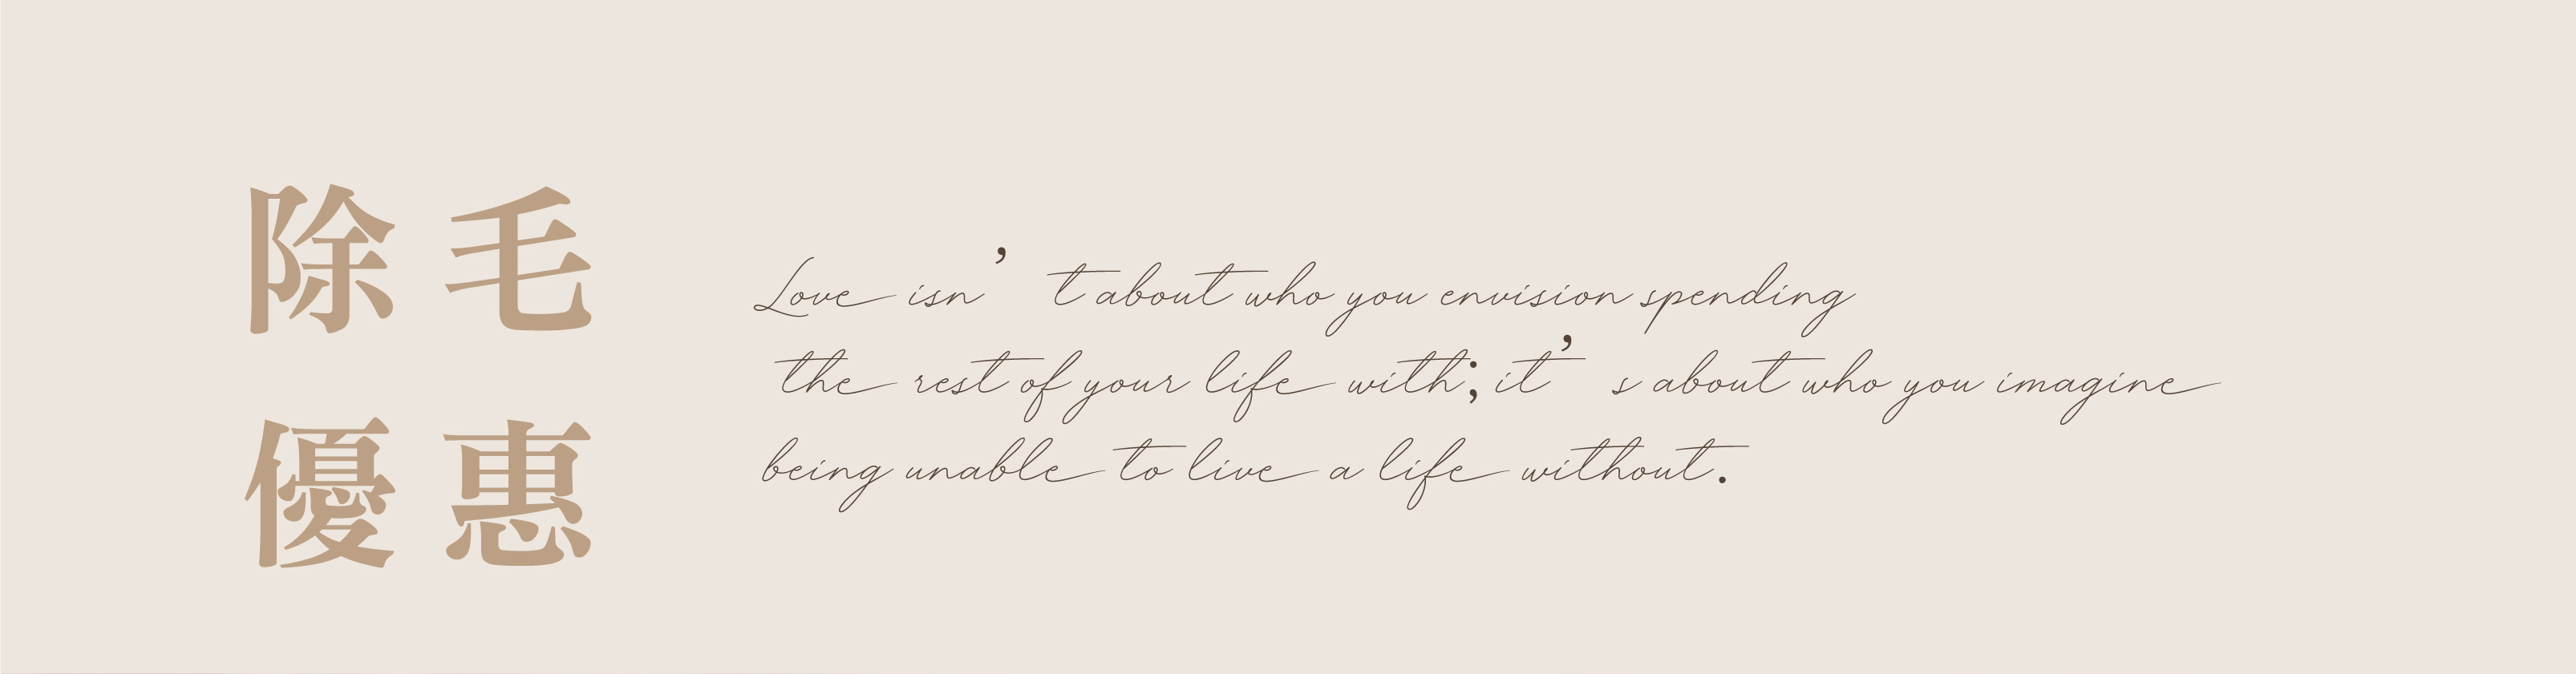 除毛
優惠
Love isn’t about who you envision spending
the rest of your life with; it’s about who you imagine
being unable to live a life without.